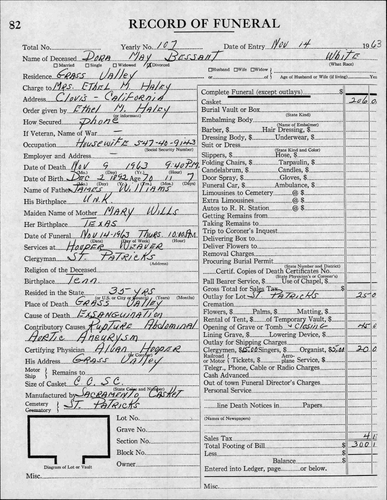 82 RECORD OF FUNERAL
Total No. Yearly No. 107 Date of Entry Nov 14 1963
Name of Deceased Dora May Bessant White
(What Race)
Married Single Widowed Divorced Husband Wife Widow of
Residence Grass Valley Age of Husband or Wife (if living) Yrs.
Charge to Mrs. Ethel M. Haley
Address Clovis - California
Order given by Ethel M. Haley
How Secured Phone
If Veteran, Name of War -
Occupation Housewife 547-40-9143
(Social Security Number)
Employer and Address
Date of Death Nov 9 1963 9:40 PM
Date of Birth Dec 2 1892 Age 70 11 7
Name of Father James Williams
His Birthplace Unk
Maiden Name of Mother Mary Wills
Her Birthplace Texas
Date of Funeral Nov-14-1963 Thurs. 10:00 AM
Services at Hooper Weaver
Clergyman St. Patricks
Religion of the Deceased
Birthplace Tenn
Resided in the State 35 yrs
Place of Death Grass Valley
Cause of Death Exsanguination
Contributory Causes Rupture Abdominal
Aortic Aneurysm
Certifying Physician Alvan Hooper
His Address Grass Valley
Motor Ship Remains to
Size of Casket C.O.S.C.
Manufactured by Sacramento Casket
Cemetery Crematory St. Patricks
Lot No.
Grave No.
Section No.
Block No.
Owner
Diagram of Lot or Vault
Misc.
Complete Funeral (except outlays) $
Casket 206 0
Burial Vault or Box
(State Kind)
Embalming Body
(Name of Embalmer)
Barber, $ Hair Dressing, $
Dressing Body, $ Underwear, $
Suit or Dress
(State Kind and Color)
Slippers, $ Hose, $
Folding Chairs, $ Tarpaulin, $
Candelabrum, $ Candles, $
Door Spray, $ Gloves, $
Funeral Car, $ Ambulance, $
Limousines to Cemetery @ $
Extra Limousines @ $
Autos to R. R. Station @ $
Getting Remains from
Taking Remains to
Trip to Coroner's Inquest
Delivering Box to
Deliver Flowers to
Removal Charges
Procuring Burial Permit
(State Number and District)
Certif. Copies of Death Certificates No.
Pall Bearer Service, $ Use of Chapel, $
Gross Total for Sales Tax $
Outlay for Lot St Patricks 25 0
Cremation
Flowers, $ Palms, $ Matting, $
Rental of Tent, $ of Temporary Vault, $
Opening of Grave or Tomb + Closing 45 0
Lining Grave, $ Lowering Device, $
Outlay for Shipping Charges
Clergymen, $15.00 Singers, $ Organist, $5.00 20 0
Railroad or Motor Tickets, $ Aeroplane Service, $
Telegr., Phone, Cable or Radio Charges
Cash Advanced
Out of town Funeral Director's Charges
Personal Service
line Death Notices in Papers
(Names of Newspapers)
Sales Tax 4
Total Footing of Bill $ 300
Less $
Balance $
Entered into Ledger, page or below.
Misc.